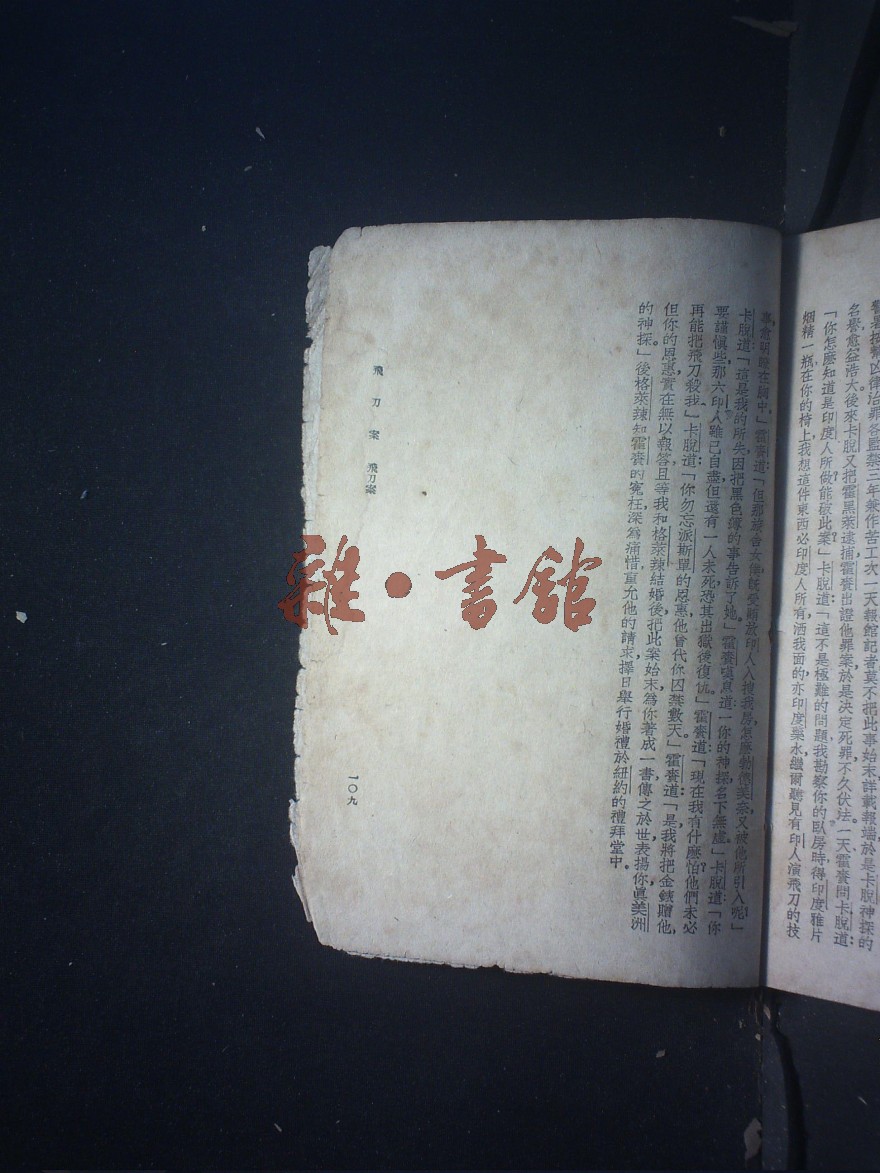 警署按幫凶律治罪各監禁三年兼作苦工次一天報館記者莫不把此事始末詳載報端於是卡脫神探的
名譽愈益浩大後來卡脫又把霍黑萊逮捕霍賚出證他罪案於是决定死罪不久伏法。一天霍賚問卡脫道：
「你怎麽知道是印度人所做能破此案」卡脫道：「這不是極難的問題我勘察你的臥房時得印度雅片
烟精一瓶在你的椅上我想這件東西必印度人所有洒我面的亦印度藥水繼爾聽見有印人演飛刀的技
愈明瞭在胸中」霍賚道：「但那被告女僕旣受賄放印人入我房怎麽勃傳美奈又被他所引入呢」
卡脫道：「這是我的所失因把黑色的事告訴了她」霍賚嘆息道「你的神探名下無虛」卡脫道：「你
要謹愼些那六印人雖已自盡但還有一人未死恐其出獄後復仇」霍賚道：「現在我有什麽怕他們未必
再能把飛刀殺我」卡脫道：「你勿忘派斯單的恩惠他曾代你囚禁數天」霍賚道：「是我將把金錢贈他，
但你的恩惠實在無以報答且等我和格萊辣結婚後把此案始末爲你著成一書傳之於世表揚你眞美洲
的神探」後格萊辣知霍賚的寃枉深爲痛惜重允他的請求擇日舉行婚禮於紐約的禮拜堂中。
飛刀案 飛刀案
一〇九
雜·書館